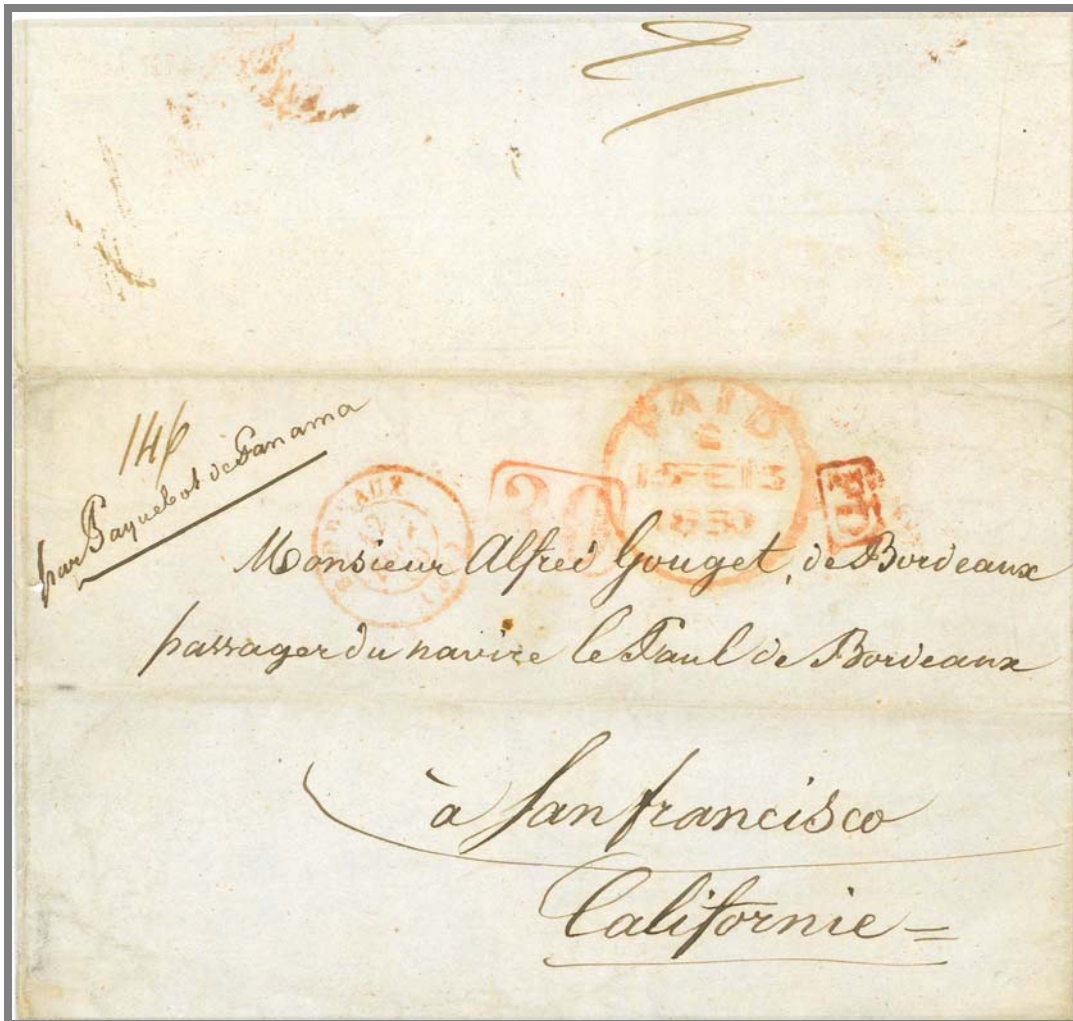 146
par Paquebot de Panama
BORDEAUX
30
PAID
13 FE 13
1850
PD
Monsieur Alfred Gouget, de Bordeaux
passager du navire le Paul de Bordeaux
à San francisco
Californie =